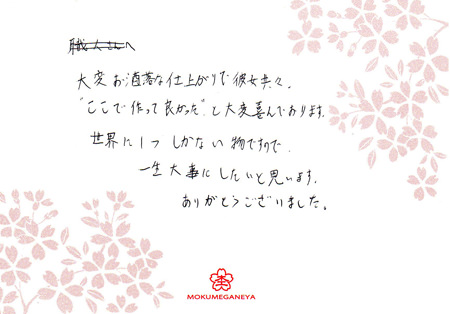 職人さんへ
大変お洒落な仕上がりで彼女共々、
"ここで作って良かった"と大変喜んでおります。
世界に1つしかない物ですので、
一生大事にしたいと思います。
ありがとうございました。
MOKUMEGANEYA